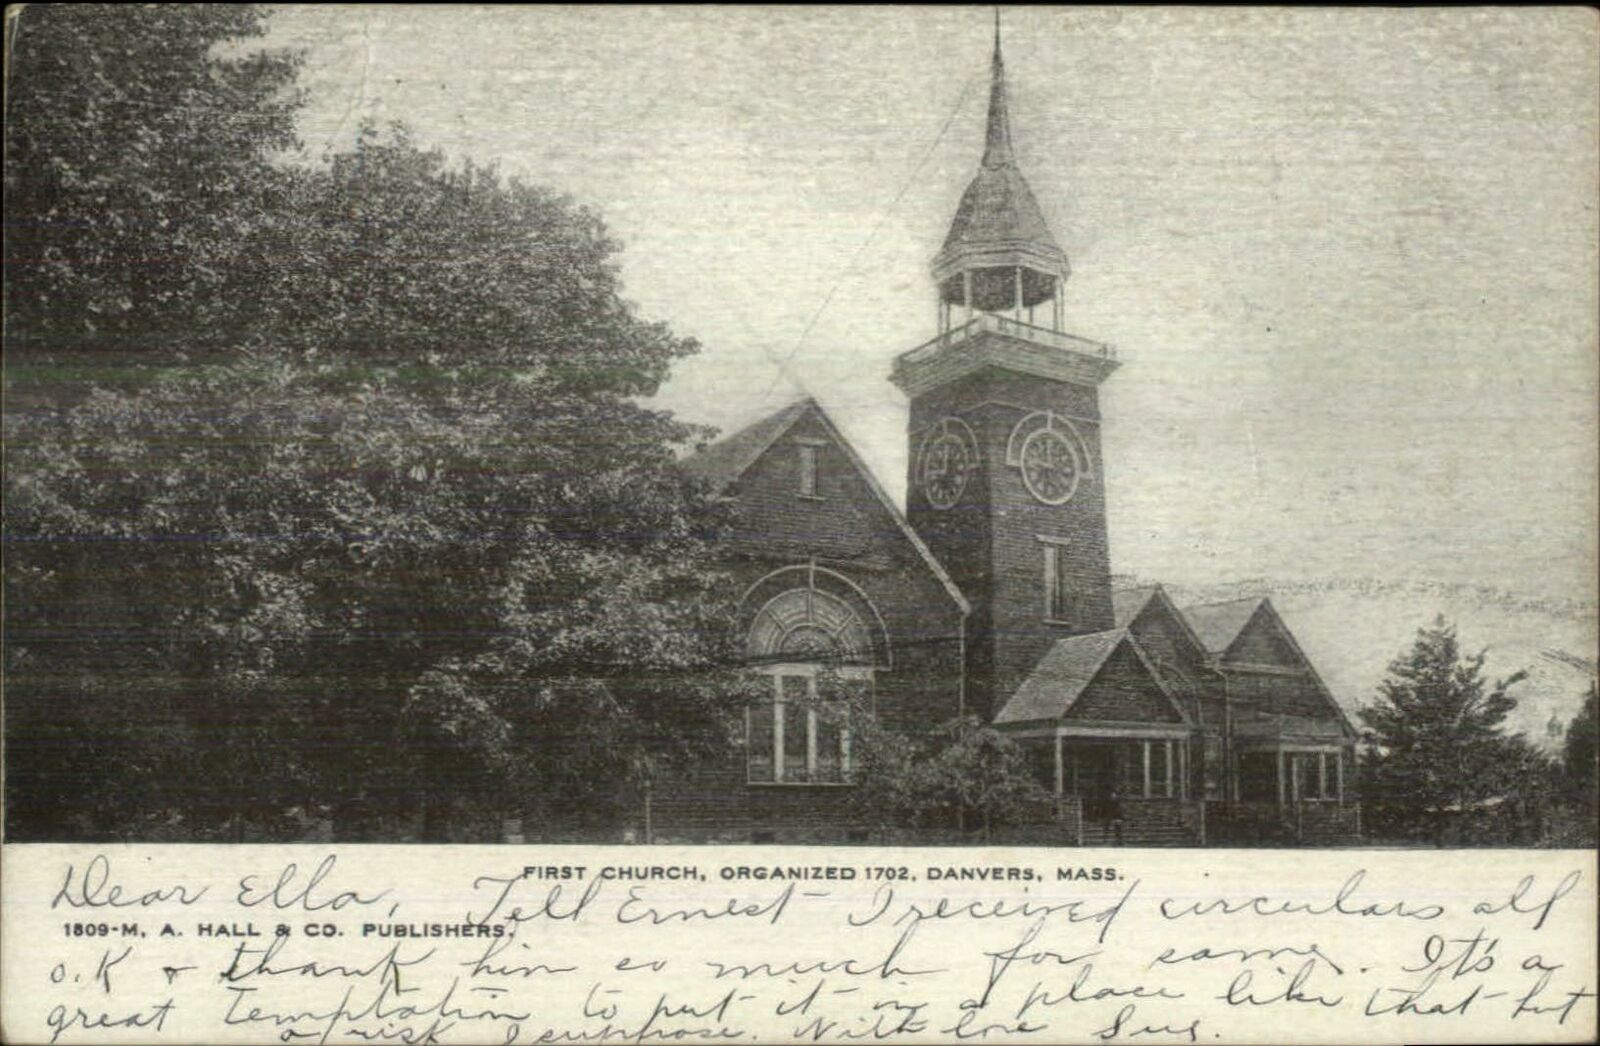 FIRST CHURCH, ORGANIZED 1702, DANVERS, MASS.
Dear Ella, Tell Ernest I received circulars all
1809-M. A. HALL & CO. PUBLISHERS.
O.K + thank him so much for same. It's a
great temptation to put it in a place like that but
a risk I suppose. With love Sue.